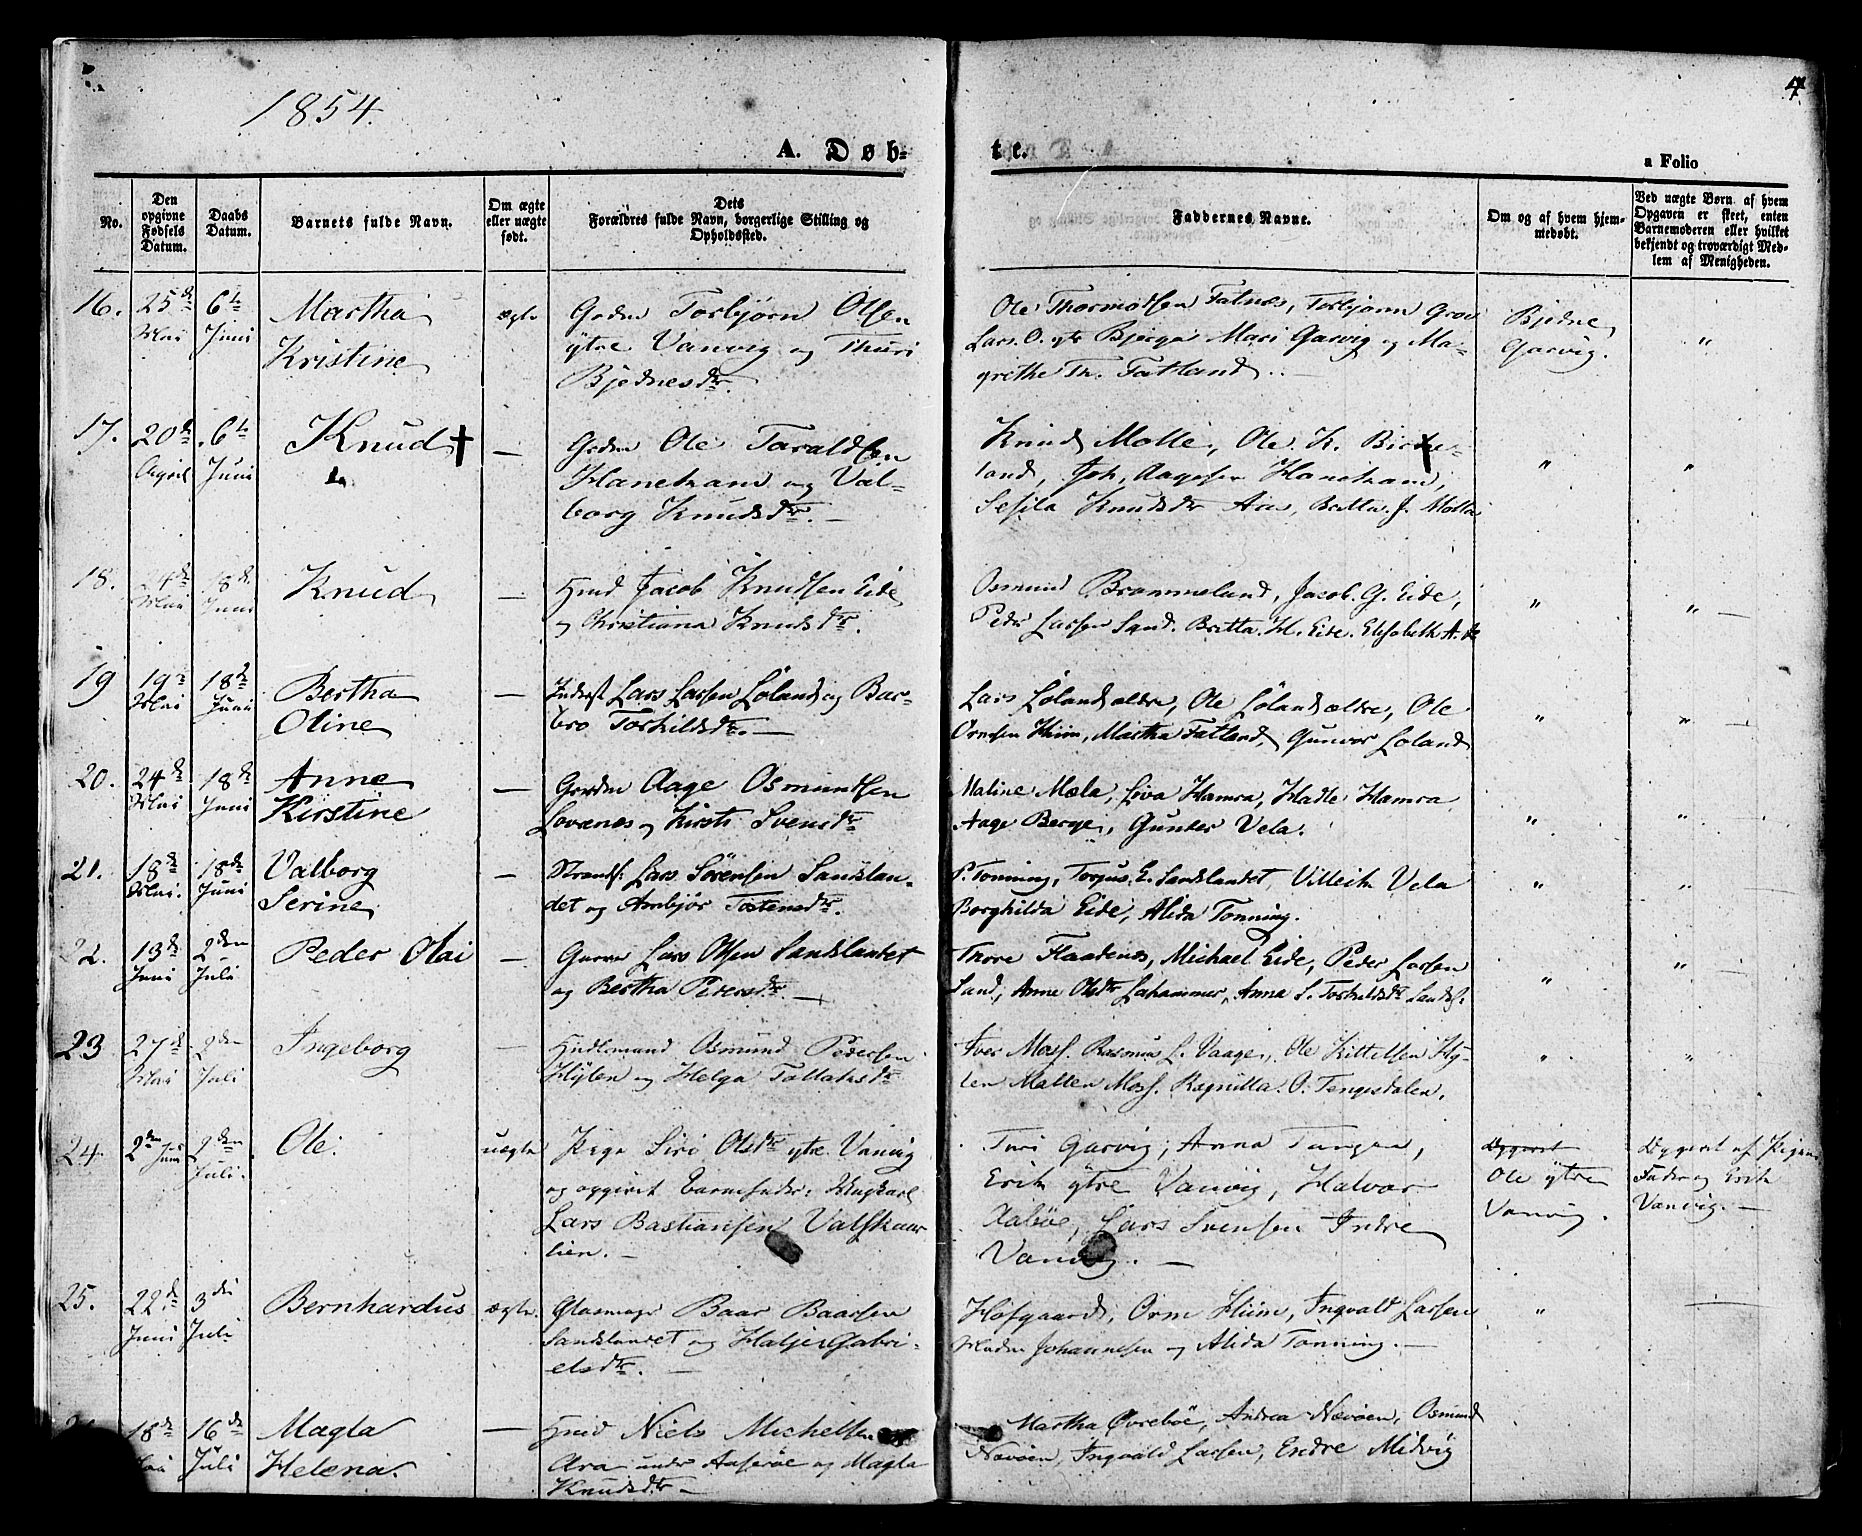 1854.
4
A. Døb-
te.
a Folio
No.
Den opgivne Fødsels Datum.
Daabs Datum.
Barnets fulde Navn.
Om ægte eller uægte født.
Dets Forældres fulde Navn, borgerlige Stilling og Opholdssted.
Faddernes Navne.
Om og af hvem hjemmedøbt.
Ved uægte Børn af hvem Opgaven er skeet, enten Barnemoderen eller hvilket bekjendt og troværdigt Medlem af Menigheden.
16. 25de Mai 6te Juni Martha Kristine ægte
Grdm Torbjørn Olsen
ytre Vanvig og Thuri
Bjednesdtr.
Ole Thormodsen Fatnes, Torbjørn
Lars O. ytr Bjerge Mari Garvig og Ma-
grethe Th. Fatland.
Bjedne
Garvig. "
17. 20de April 6te Juni Knud † —
Grdm Ole Taraldsen
Hanekam og Val-
borg Knudsdtr. —
Knud Molle, Ole K. Birke-
land, Joh. Aagesen Hanekam,
Sesila Knudsdtr Aa, Britta J. Molla
" "
18. 24de Mai 18de Juni Knud —
Hmd Jacob Knudsen Eide
og Christiana Knudsdtr.
Osmund Brommeland, Jacob. G. Eide,
Peder Larsen Sand. Britta. H. Eide. Elisabeth A.
" " —
19 19de Mai 18de Juni Bertha Oline —
Inderst Lars Larsen Løland og Bar-
bro Torkildsdtr. —
Lars Løland ældre, Ole Løland ældre, Ole
Ormsen Hiim, Martha Fatland, Gunvor Løland
" " —
20. 24de Mai 18de Juni Anne Kirstine —
Grdm Aage Osmundsen
Lovænes og Kirsti Svensdtr
Maline Mæla, Siva Hamra, Halle Hamra
Aage Berge, Gunder Vela.
" "
21. 18de Mai. 18de Juni Valborg Serine —
Strands: Lars Sörensen Sandslan-
det og Ambjör Tostensdtr.
P. Tonning, Torjus E. Sandslandet, Villeik Vela
Borghilda Eide, Alida Tonning.
" "
22. 13de Juni 2den Juli Peder Olai —
Garver Lars Olsen Sandslandet
og Bertha Pedersdtr. —
Thore Flaadenes, Michael Eide, Peder Larsen
Sand, Anne Olsdtr Lahammer, Anna S. Torkildsdtr Sandsl.
" " —
23 27de Mai 2den Juli Ingeborg —
Huusmand Osmund Pedersen
Hylen og Helga Tollaksdtr
Iver Mosf. Rasmus L. Vaage, Ole Kittelsen Hy-
len Mallen Mosf. Ragnilla. O. Tengesdalen.
" "
24. 2den Juni 2den Juli. Ole. uægte
Pige Siri Olsdtr ytre Vanvig
og opgivet Barnefader: Ungkarl
Lars Bastiansen Valskaar
lien. —
Turi Garvig, Anna Tangen,
Erik ytre Vanvig, Halvor
Aabøe, Lars Svensen Indre
Vanvig. —
Opgivet
Ole ytre
Vanvig.
Opgivet af Pigens
Fader og Erik
Vanvig. —
25. 22de Juni 3die Juli Bernhardus ægte.
Glasmager Baar Baarsen
Sandslandet og Gabri-
elsdtr. —
Hofgaard, Orm Hiim, Ingvald Larsen
Johannesen og Alida Tonning. —
" —
18de Mai 16de Juli Magla Helena. —
Hmd Niels Michelsen
Ara under og Magla
Knudsdtr —
Martha Øvrebøe, Andrea Nævøen, Osmund
Nævøen, Ingvald Larsen, Endre Midvig